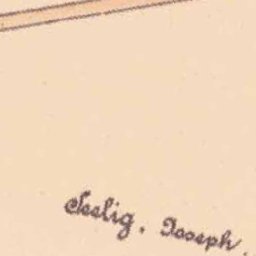 Seelig, Joseph,